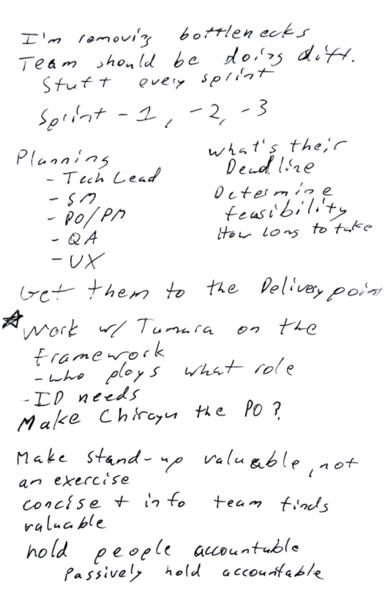 I'm removing bottlenecks
Team should be doing diff.
Stuff every sprint
Sprint -1, -2, -3
Planning
- Tech Lead
- SM
- PO/PM
- QA
- UX
What's their
Deadline
Determine
feasibility
How long to take
Get them to the Delivery point
Work w/ Tumara on the
framework
- who plays what role
- ID needs
Make Chirayu the PO?
Make stand-up valuable, not
an exercise
concise + info team finds
valuable
hold people accountable
Passively hold accountable